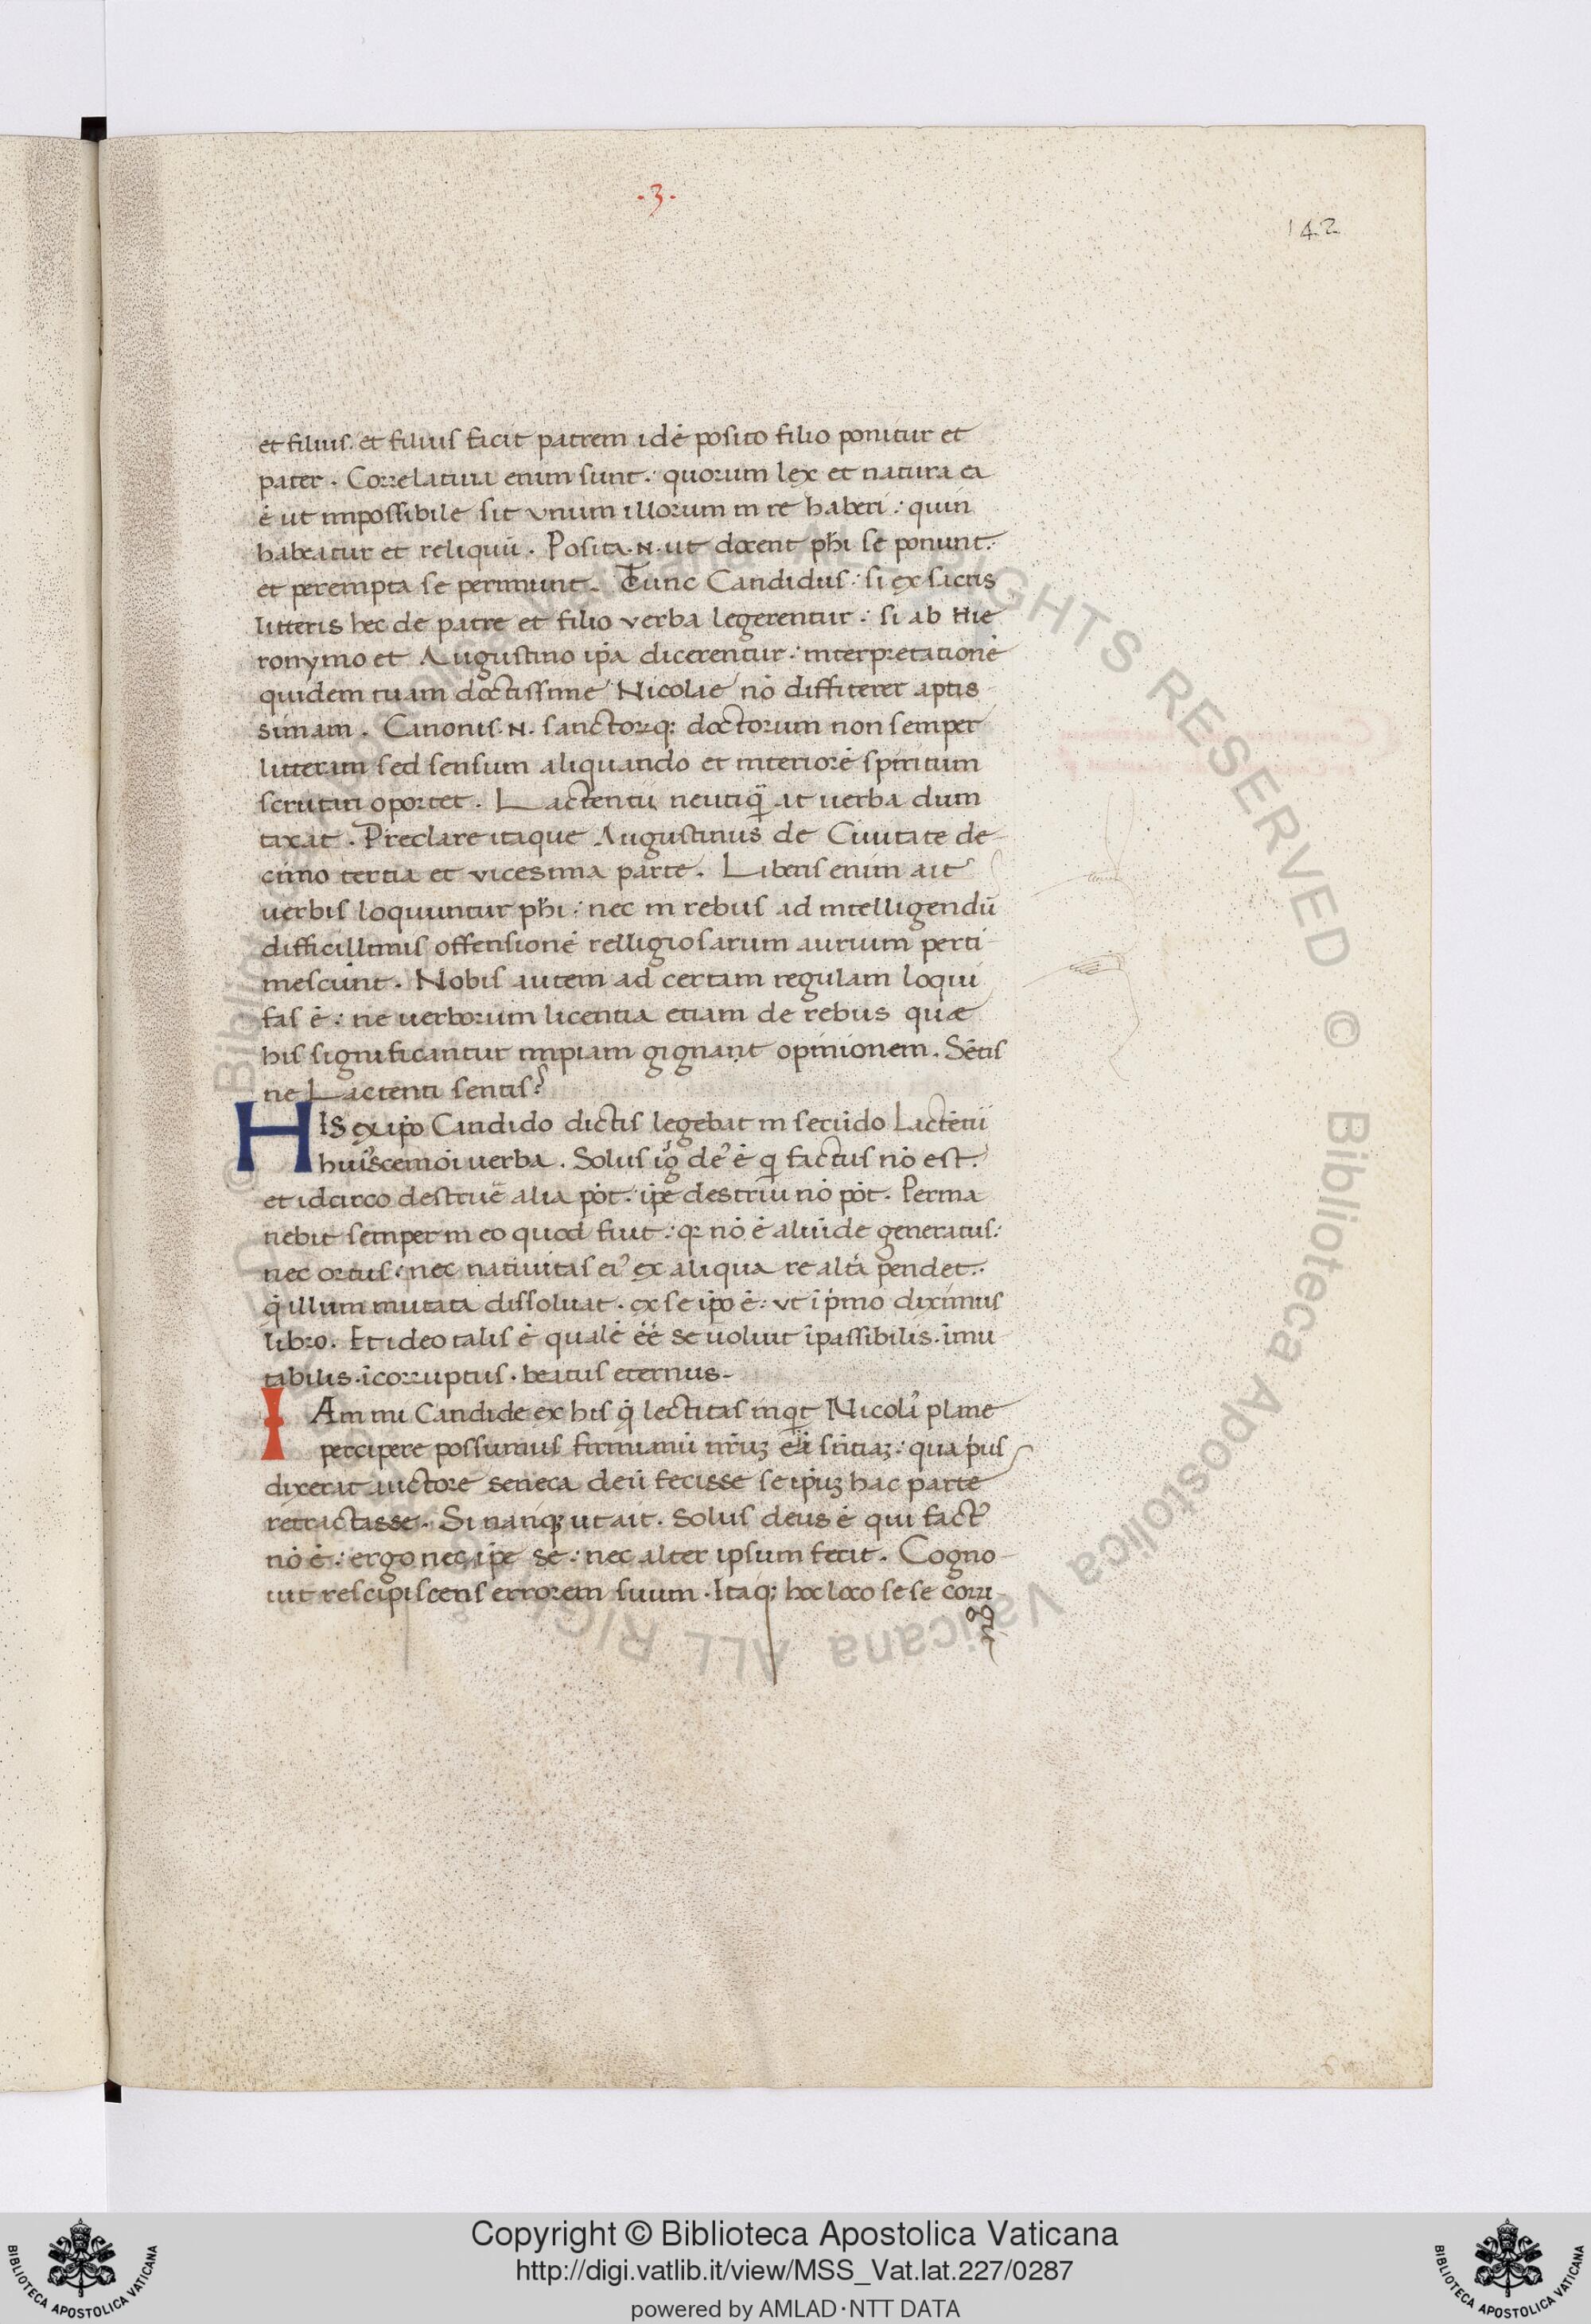 ·3·
142
et filius. et filius facit patrem idē posito filio ponitur et
pater. Correlatiua enim sunt: quorum lex et natura ea
ē ut impossibile sit vnum illorum in re haberi: quin
habeatur et reliquū. Posita .N. ut docent phi se ponunt:
et perempta se perimunt. Tunc Candidus: si ex sacris
litteris hec de patre et filio verba legerentur: si ab Hie
ronymo et Augustino ipa dicerentur: interpretationē
quidem tuam doctissime Nicolae nō diffiterer aptis
simam. Canonis .N. sanctorq; doctorum non semper
litteram sed sensum aliquando et interiorē spiritum
scrutari oportet. Lactentii neutiq̄ at uerba dum
taxat. Preclare itaque Augustinus de Ciuitate de
cimo tertia et vicesima parte. Liberis enim ait
uerbis loquuntur phi: nec in rebus ad intelligendū
difficillimis offensionē relligiosarum aurium perti
mescunt. Nobis autem ad certam regulam loqui
fas ē: ne uerborum licentia etiam de rebus quæ
his significantur impiam gignant opinionem. Sētis
ne Lactenti sentis?
HIS ex ipo Candido dictis legebat in secūdo Lactētii
huiꝰscemoi uerba. Solus ig̃ deꝰ ē q factus nō est:
et idcirco destruē alia pōt: ipe destrui nō pōt. Perma
nebit semper in eo quod fuit: qꝛ nō ē aliūde generatus:
nec ortus: nec natiuitas eiꝰ ex aliqua re altā pendet:
q̄ illum mutata dissoluat. ex se ipo ē: vt ī pmo diximus
libro. Et ideo talis ē qualē ēē se uoluit īpassibilis. īmu
tabilis. īcorruptus. beatus eternus.
IAm mi Candide ex his q̄ lectitas inqt Nicolaꝰ plane
percipere possumus firmianū nrūꝫ eā sntiaꝫ: qua pus
dixerat auctore seneca deū fecisse se ipūꝫ hac parte
retractasse. Si nanqꝫ ut ait. Solus deus ē qui factꝰ
nō ē: ergo nec ipe se: nec alter ipsum fecit. Cogno
uit rescipiscens errorem suum. Itaq; hoc loco se se corri
Copyright © Biblioteca Apostolica Vaticana
http://digi.vatlib.it/view/MSS_Vat.lat.227/0287
powered by AMLAD·NTT DATA
BIBLIOTECA APOSTOLICA VATICANA
BIBLIOTECA APOSTOLICA VATICANA
© Biblioteca Apostolica Vaticana ALL RIGHTS RESERVED